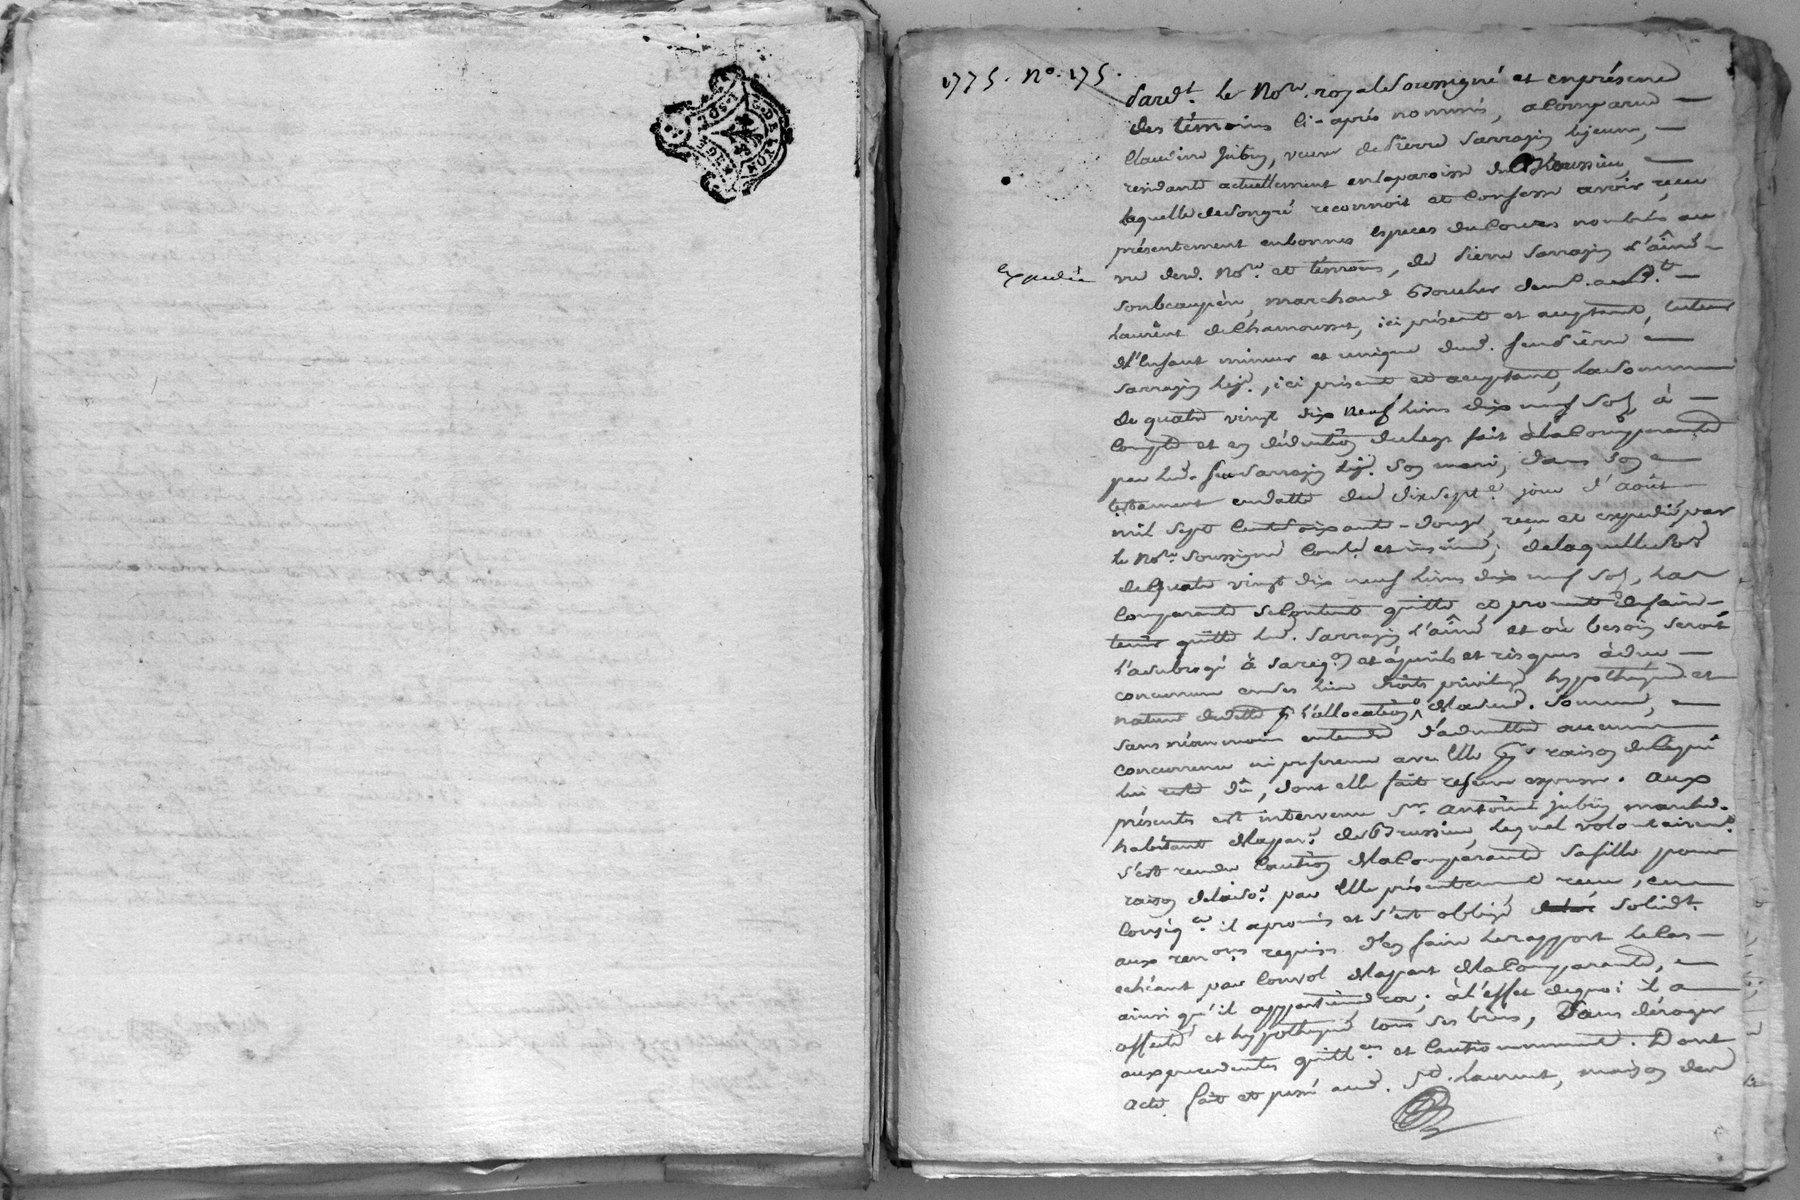 1775. No. 175.
Pardt. le Nore. royal Soussigné et en présence
des témoins ci-après nommés, a Comparu
Claudine Jubin, veuve de Pierre Sarrazin lejeune,
residante actuellement en la paroisse de Brussieu,
laquelle de son gré reconnoit et Confesse avoir reçu
présentement en bonnes espèces du Cours nombrés au
expediée
vu dud. Nore. et témoins, de Pierre Sarrazin L'aîné
son beau père, marchand Boucher dem.t aud. St.
Laurent de Chamousset, ici présent et acceptant, tuteur
de l'Enfant mineur et unique dud. feu Pierre
Sarrazin leje., ici présent et acceptant, la Somme
de quatre vingt dix neuf livres dix neuf Sols, à
Compte et en déduction du legs fait à la Comparante
par led. feu Sarrazin leje. Son mari, dans Son
testament en datte du dix Septe. jour d'août
mil Sept Cent Soixante-douze, reçu et expedié par
le Nore. Soussigné Contlé. et insinué; de laquelle So.
de Quatre vingt dix neuf livres dix neuf Sols, la
Comparante Se Contente quitte et promet de faire
tenir quitte led. Sarrazin L'aîné et où besoin Seroit
l'a Subrogé à Sa reqon. et à périls et risques à due
concurrence en Ses lieu droits privilege hypothéque et
nature de dette pr. l'allocation de lad. Somme,
Sans néanmoins entendre d'admettre aucune
concurrence ni preference avec Elle pr. raison de Ce qui
lui reste dû, dont elle fait reserve expresse. Aux
présentes est intervenu Sr. Antoine Jubin marchd.
habitant de la parse. de Brussieu, lequel volontairemt.
S'est rendu Caution de la Comparante Sa fille pour
raison de la So. par Elle présentement reçue, en
Conséqce. il a promis et S'est obligé Solidt.
aux renons. requises d'en faire le rapport le Cas
echéant par Convol de la part de la Comparante,
ainsi qu'il appartiendra; à l'effet de quoi il a
affecté et hypothequé tous Ses biens, Sans déroger
aux precedentes quittces. et Cautionnement. Dont
acte. fait et passé aud. St. Laurent, maison de